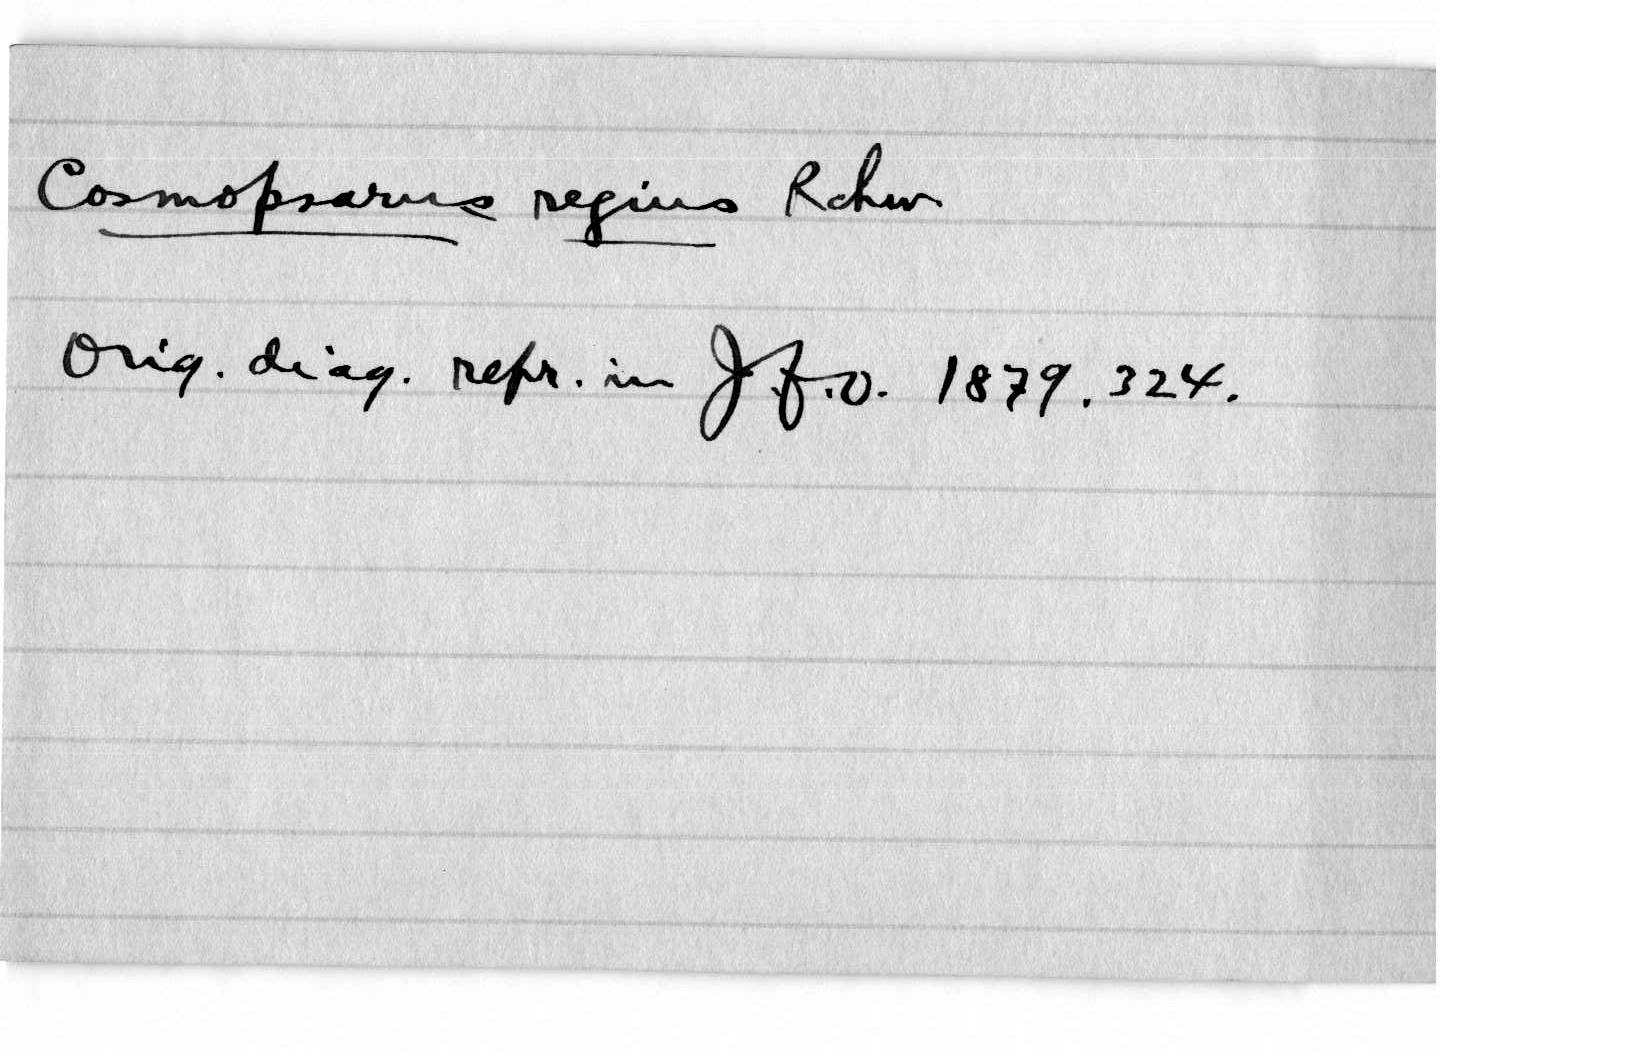 Cosmopsarus regius Rchw
Orig. diag. repr. in J.f.O. 1879.324.